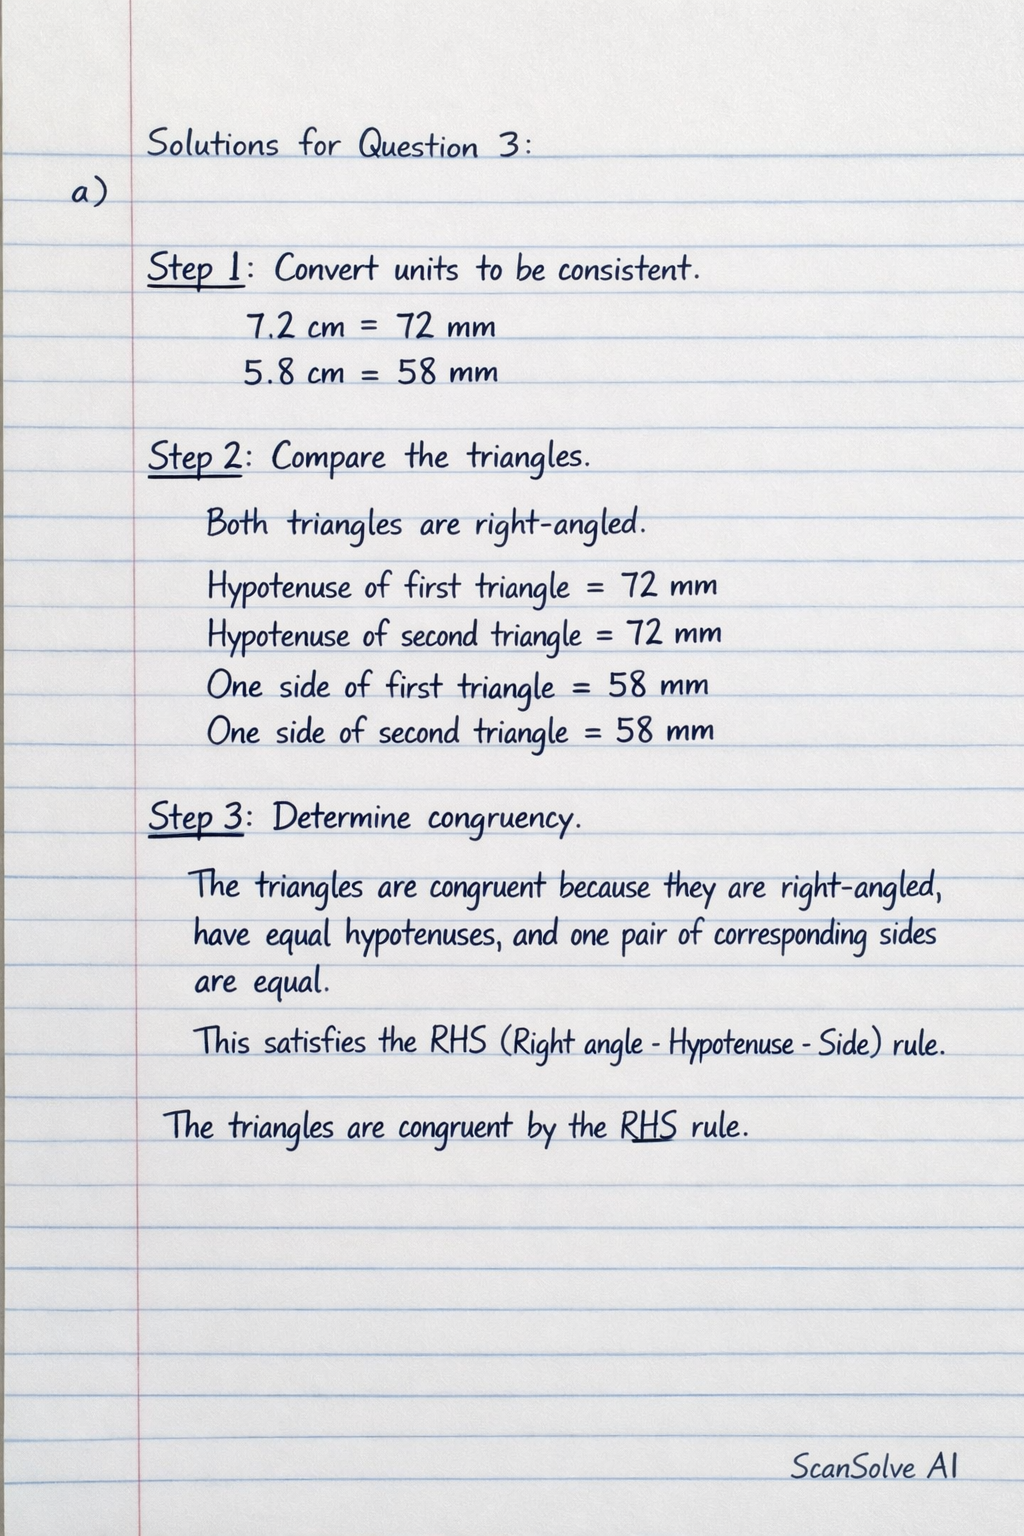 Solutions for Question 3:
a)
Step 1: Convert units to be consistent.
7.2 cm = 72 mm
5.8 cm = 58 mm
Step 2: Compare the triangles.
Both triangles are right-angled.
Hypotenuse of first triangle = 72 mm
Hypotenuse of second triangle = 72 mm
One side of first triangle = 58 mm
One side of second triangle = 58 mm
Step 3: Determine congruency.
The triangles are congruent because they are right-angled,
have equal hypotenuses, and one pair of corresponding sides
are equal.
This satisfies the RHS (Right angle - Hypotenuse - Side) rule.
The triangles are congruent by the RHS rule.
ScanSolve AI